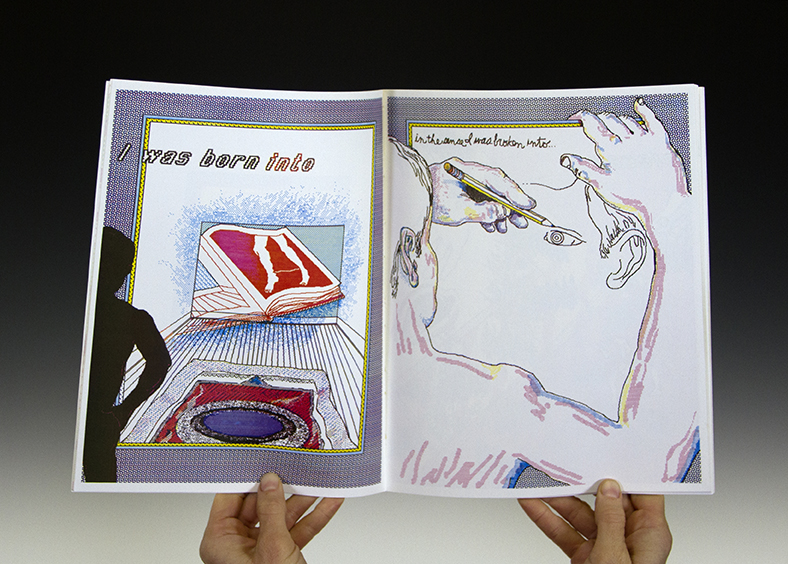 I was born into
in the sense I was broken into...